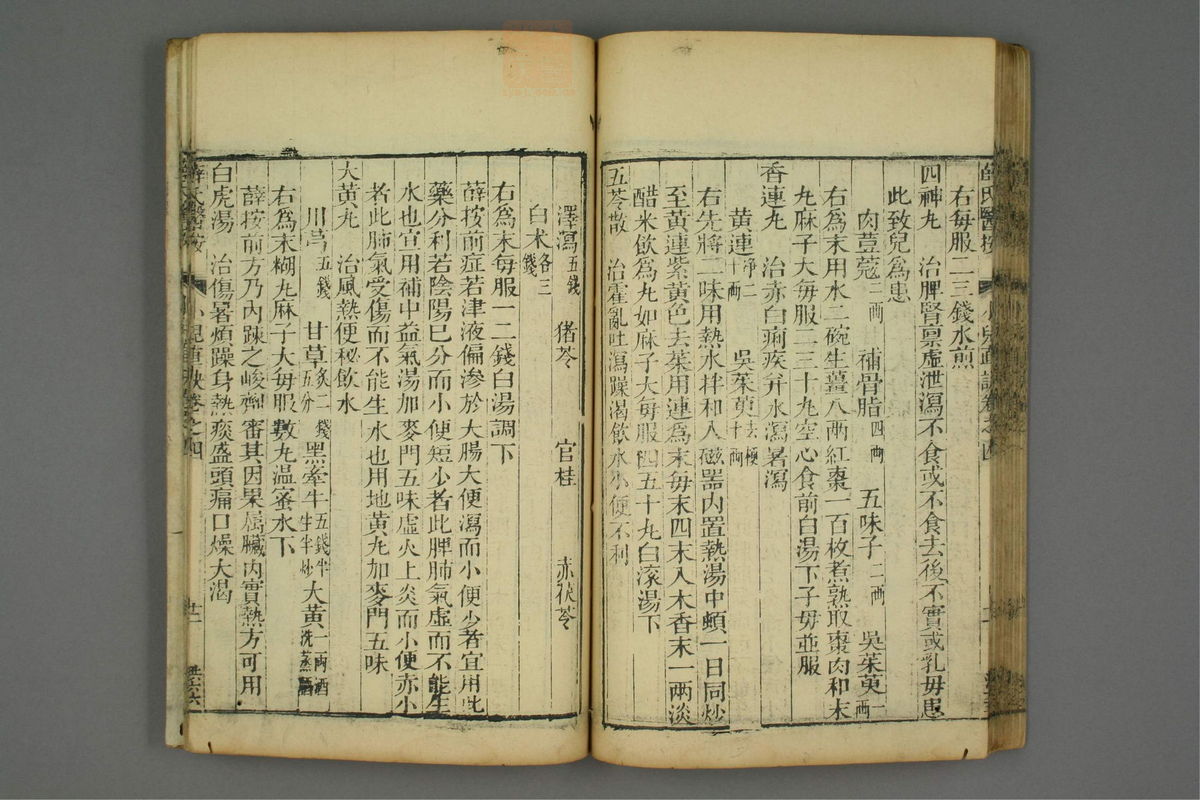 右每服二三錢水煎
四神丸　治脾腎稟虛泄瀉不食或不食去後不實或乳母患
此致兒爲患
肉荳蔻二兩　補骨脂四兩　五味子二兩　吳茱萸一兩
右爲末用水二碗生薑八兩紅棗一百枚煮熟取棗肉和末
丸麻子大每服二三十丸空心食前白湯下子母並服
香連丸　治赤白痢疾并水瀉暑瀉
黃連淨二十兩　吳茱萸去梗十兩
右先將二味用熱水拌和入磁器內置熱湯中頓一日同炒
至黃連紫黃色去茱用連爲末每末四末入木香末一兩淡
醋米飲爲丸如麻子大每服四五十丸白滾湯下
五苓散　治霍亂吐瀉躁渴飲水小便不利
澤瀉五錢　猪苓　官桂　赤茯苓
白术各三錢
右爲末每服一二錢白湯調下
薛按前症若津液偏滲於大腸大便瀉而小便少者宜用此
藥分利若陰陽已分而小便短少者此脾肺氣虛而不能生
水也宜用補中益氣湯加麥門五味虛火上炎而小便赤少
者此肺氣受傷而不能生水也用地黃丸加麥門五味
大黃丸　治風熱便秘飲水
川芎五錢　甘草炙二錢五分　黑牽牛五錢半生半炒　大黃一兩酒洗蒸
右爲末糊丸麻子大每服數丸溫蜜水下
薛按前方乃內踈之峻劑審其因果屬臟內實熱方可用
白虎湯　治傷暑煩躁身熱痰盛頭痛口燥大渴
薛氏醫按　小兒直訣卷之四